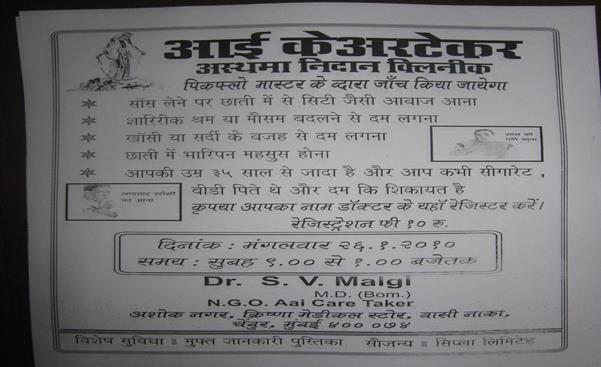 आई केअरटेकर
अस्थमा निदान क्लिनीक
पिकफ्लो मास्टर के व्दारा जाँच किया जायेगा
साँस लेने पर छाती में से सिटी जैसी आवाज आना
शारिरीक श्रम या मौसम बदलने से दम लगना
खाँसी या सर्दी के वजह से दम लगना
छाती में भारिपन महसुस होना
आपकी उम्र ३५ साल से जादा है और आप कभी सीगारेट ,
बीडी पिते थे और दम कि शिकायत है
लगातार खाँसी
का आना
कृपया आपका नाम डॉक्टर के यहाँ रेजिस्टर करें।
रेजिस्ट्रेशन फी १० रु.
दिनांक : मंगलवार २६.१.२०१०
समय : सुबह ९.०० से १.०० बजेतक
Dr. S. V. Malgi
M.D. (Bom.)
N.G.O. Aai Care Taker
अशोक नगर, क्रिष्णा मेडीकल स्टोर, वासी नाका,
चेंबुर, मुंबई ४०० ०७४
विशेष सुविधा : मुफ्त जानकारी पुस्तिका सौजन्य : सिप्ला लिमिटेड